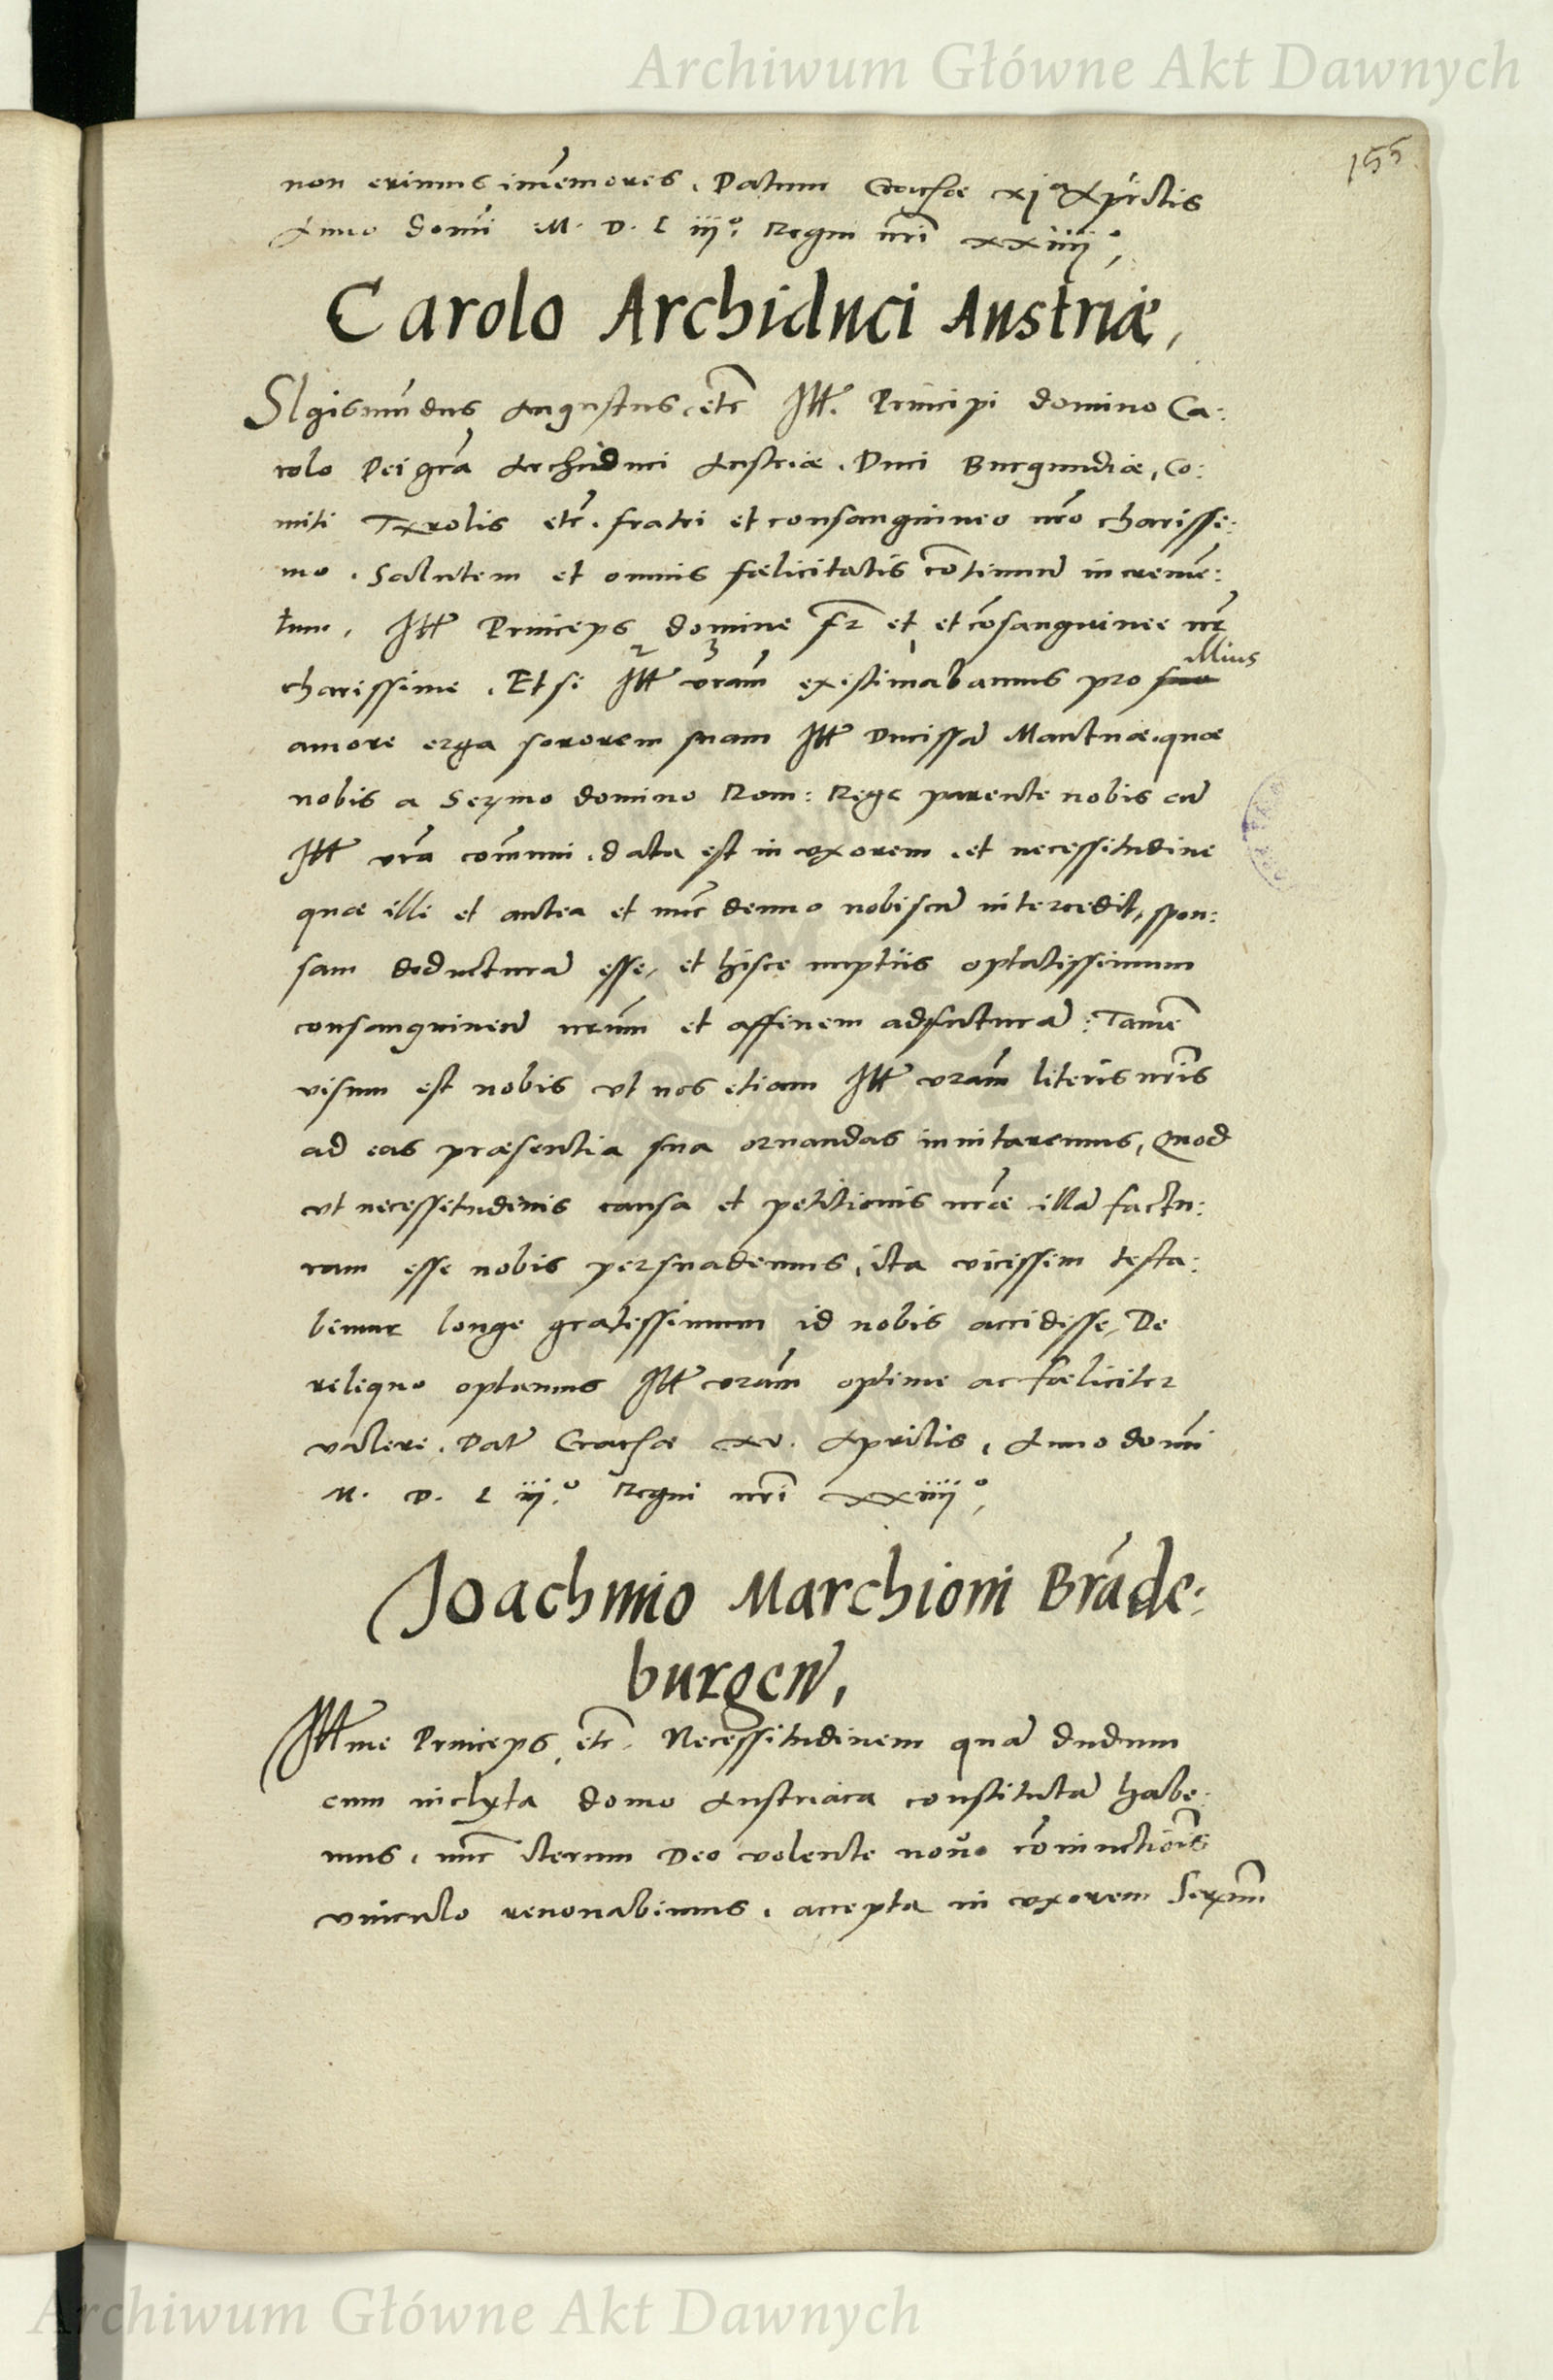 Archiwum Główne Akt Dawnych
155.
non erimus im̃emores. Datum Crac͠iae xjᵃ Aprilis
Anno domĩ M. D. L iijº. Regni nr̃i xxiiijº,
Carolo Archiduci Austriæ,
SIgismũdus Augustus etc̃ Ill. Principi domino Ca:
rolo Dei gr̃a Archiduci Austriæ. Duci Burgundiæ, Co:
miti Tyrolis etc̃. fratri et consanguineo nr̃o charissi:
mo. Salutem et omnis fœlicitatis cõtinuũ increme͂:
tum. Ill Princeps domine fr̃ et et cõsanguinee nr̃
2 3 1 illius
charissime. Etsi Ill vr̃am existimabamus pro suo
amore erga sororem suam Ill Ducissã Mantuæ. quæ
nobis a Serᵐᵒ domino Rom: Rege parente nobis cũ
Ill vr̃a com̃uni. data est in uxorem. et necessitudine
quæ illi et antea et nũc denuo nobiscũ intercedit, spon:
sam deducturã esse, et hisce nuptiis optatissimum
consanguineũ nr̃um et affinem adfuturã: Tame͂
visum est nobis ut nos etiam Ill vr̃am literis nr̃is
ad eas præsentia sua ornandas invitaremus, Quod
ut necessitudinis causa et petitionis nr̃æ illã factu:
ram esse nobis persuademus, ita vicissim testa:
bimur longe gratissimum id nobis accidisse, De
reliquo optamus Ill vr̃am optime ac fœliciter
valere. Dat̃ Crac͠iae xv. Aprilis, Anno domĩ
M. D. L iijº. Regni nr̃i xxiiijº,
Joachimo Marchioni Brãde:
burgeñ,
Illme Princeps etc̃. Necessitudinem quã dudum
cum inclyta domo Austriaca constitutã habe:
mus, nũc iterum Deo volente novo cõiunctiõis
vinculo renovabimus, accepta in uxorem Serᵐᵃ̃
Archiwum Główne Akt Dawnych